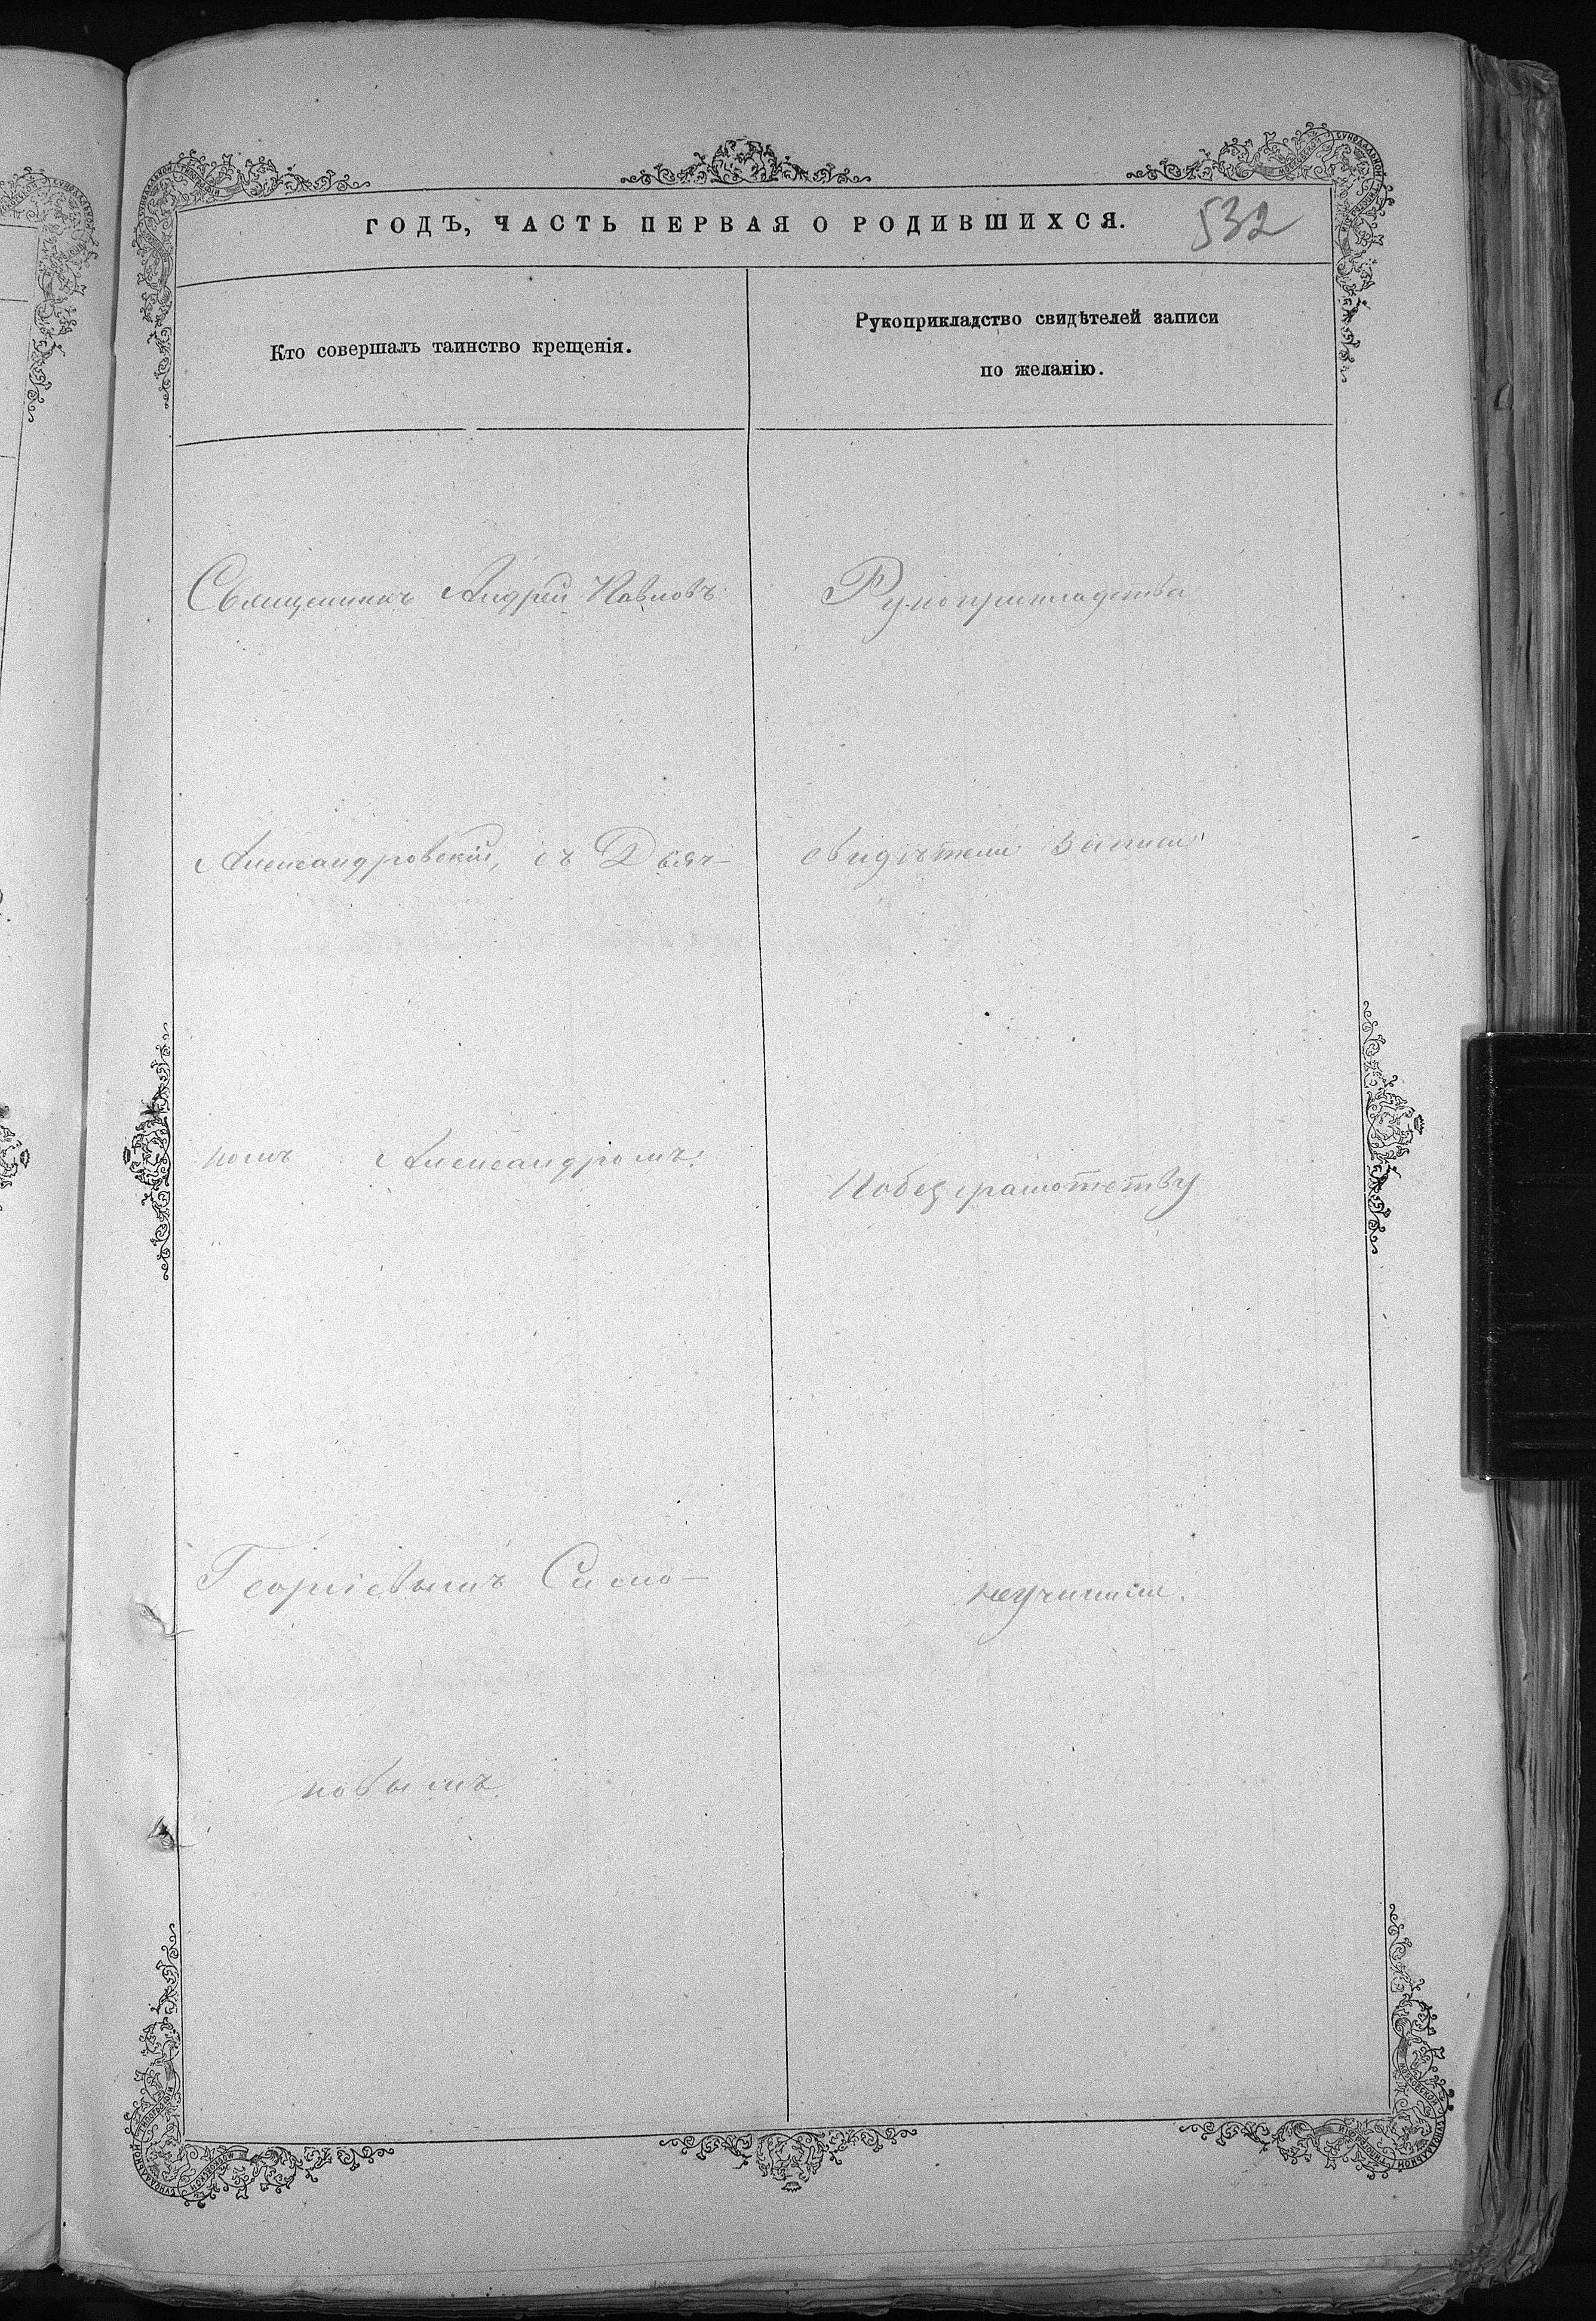 ГОДЪ, ЧАСТЬ ПЕРВАЯ О РОДИВШИХСЯ.
532
Кто совершалъ таинство крещенія.
Рукоприкладство свидѣтелей записи
по желанію.
Священникъ Андрей Павловъ
Александровскій, съ Дьяч-
комъ Александромъ
Георгіевымъ Симо-
новымъ.
Рукоприкладства
свидѣтели записи
Побезграмотству
неучинили.